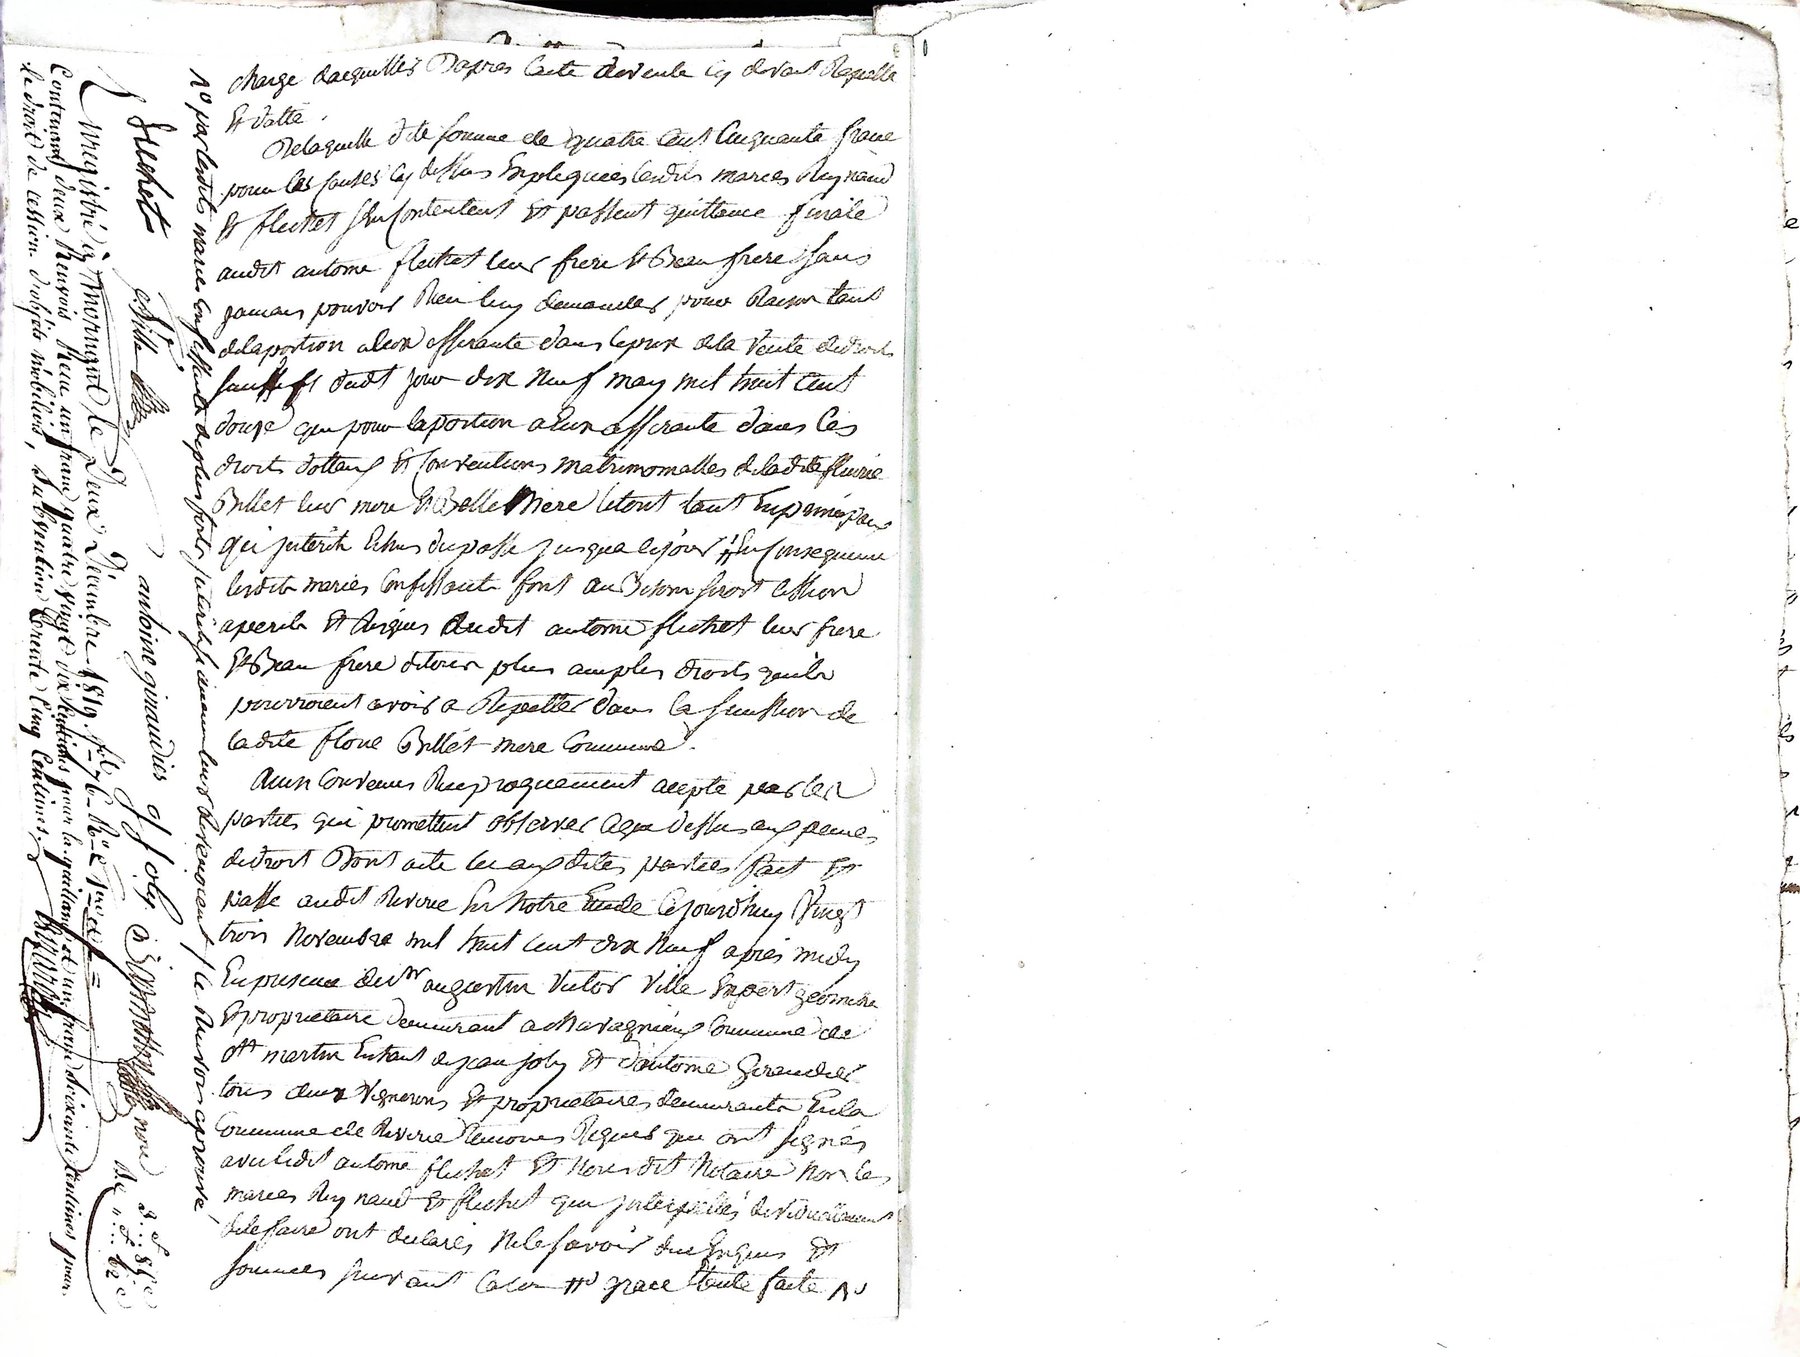 charge dacquitter Dapres lacte devente Cy devant Rapellé
Et datté.
Delaquelle dite somme de quatre Cent Cinquante francs
pour les causes Cy dessus Expliquées lesdits maries Reynaud
Et flechet Sen Contentent Et passent quittance finale
audit antoine flechet leur frere Et Beau frere Sans
jamais pouvoir Rien luy demander pour Raison tant
delaportion aleur afferante dans leprix dela Vente de droits
Successifs dudt jour dix Neuf may mil huit Cent
douze que pour laportion aleur afferante dans les
droits dotteaux Et Conventions matrimonialles deladite fleurie
Billet leur mere Et Belle Mere letout tant En principaux
qu'interets Echus dupassé jusqua cejour # En Consequence
lesdits maries Confessants font au Besoin cession
audit antoine flechet leur frere
Et Beau frere detous plus amples droits quils
pourroient avoir a Repetter dans la Succession de
ladite Billet mere Commune.
Ainsi Convenus Reciproquement accepté par les
parties qui promettent observer ceque dessus aux peines
dedroit Dont acte lu auxdites parties fait Et
passé audit Riverie En Notre Etude Cejourdhuy Vingt
trois Novembre mil huit Cent dix Neuf après midy
En presence de Sr augustin Victor Ville Expert geometre
Et proprietaire demeurant a chavagnieux Commune de
St martin En haut de jean joly Et d'antoine Giraudier
tous deux Vignerons Et proprietaires demeurants En la
Commune de Riverie temoins Requis qui ont signés
avec ledit antoine flechet Et Nous dit Notaire Non les
maries Reynaud Et flechet qui interpellés
de le faire ont declarés Ne le savoir de ce Enquis Et
sommés suivant la loi
No par lesdits maries
le Renvoi aprouvé
flechet
Ville
antoine giraudier
j joly
Enregistré à Mornant le Deux Décembre 1819. fol. 76
Contenant deux Renvois Reçu un franc quatre vingt dix centimes pour la quittance et un franc soixante centimes pour
le droit de cession d'objets mobiliers, Subvention trente Cinq Centimes.